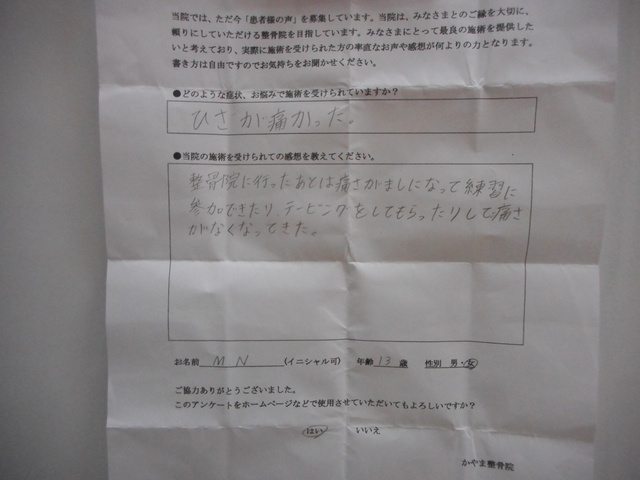 当院では、ただ今「患者様の声」を募集しています。当院は、みなさまとのご縁を大切に、
頼りにしていただける整骨院を目指しています。みなさまにとって最良の施術を提供した
いと考えており、実際に施術を受けられた方の率直なお声や感想が何よりの力となります。
書き方は自由ですのでお気持ちをお聞かせください。
●どのような症状、お悩みで施術を受けられていますか?
ひざが痛かった。
●当院の施術を受けられての感想を教えてください。
整骨院に行ったあとは痛さがましになって練習に
参加できたり、テーピングをしてもらったりして痛さ
がなくなってきた。
お名前 M N (イニシャル可) 年齢 13 歳 性別 男・女
ご協力ありがとうございました。
このアンケートをホームページなどで使用させていただいてもよろしいですか?
はい いいえ
かやま整骨院